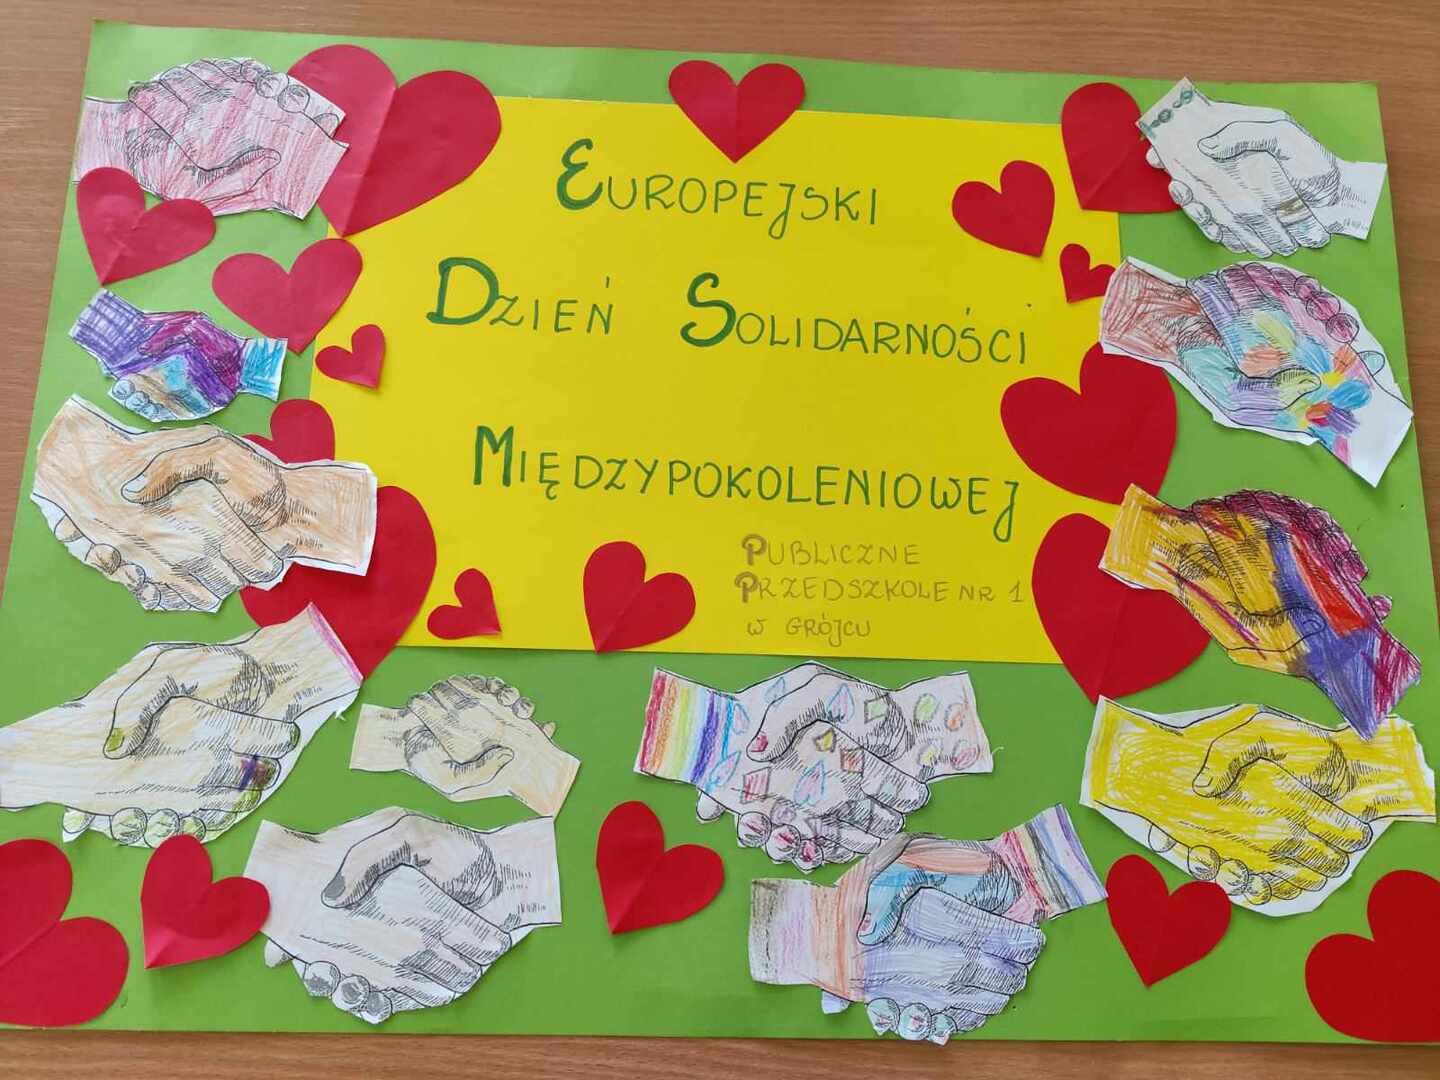 EUROPEJSKI
DZIEŃ SOLIDARNOŚCI
MIĘDZYPOKOLENIOWEJ
PUBLICZNE
PRZEDSZKOLE NR 1
W GRÓJCU